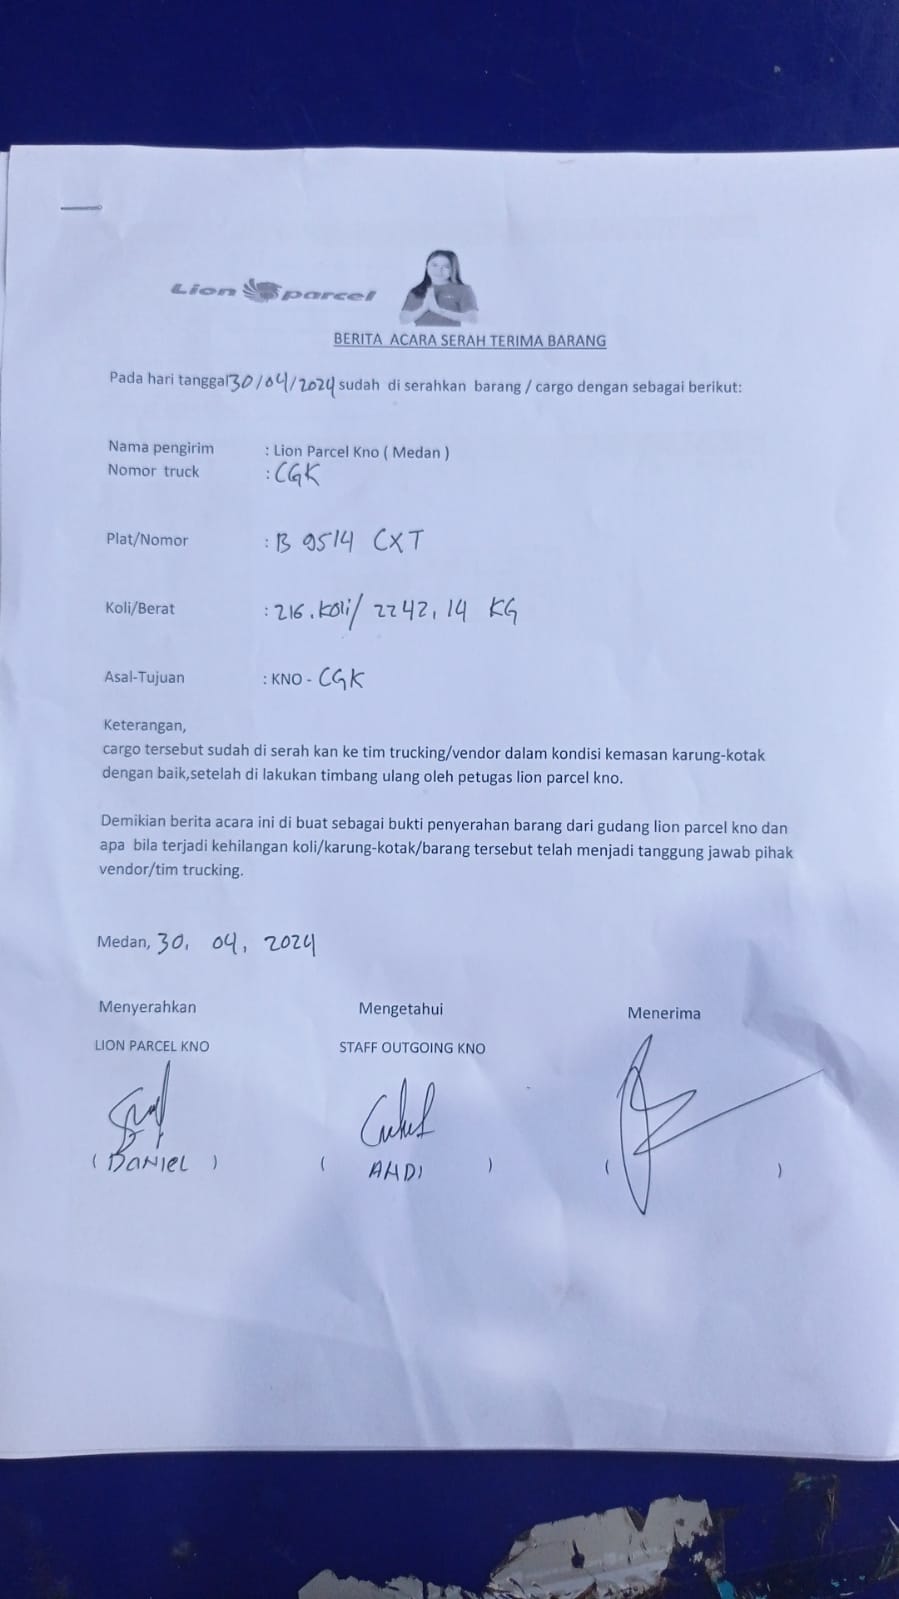 Lion parcel
BERITA ACARA SERAH TERIMA BARANG
Pada hari tanggal 30/04/2024 sudah di serahkan barang / cargo dengan sebagai berikut:
Nama pengirim : Lion Parcel Kno ( Medan )
Nomor truck : CGK
Plat/Nomor : B 9514 CXT
Koli/Berat : 216.Koli/ 2242,14 KG
Asal-Tujuan : KNO - CGK
Keterangan,
cargo tersebut sudah di serah kan ke tim trucking/vendor dalam kondisi kemasan karung-kotak
dengan baik,setelah di lakukan timbang ulang oleh petugas lion parcel kno.
Demikian berita acara ini di buat sebagai bukti penyerahan barang dari gudang lion parcel kno dan
apa bila terjadi kehilangan koli/karung-kotak/barang tersebut telah menjadi tanggung jawab pihak
vendor/tim trucking.
Medan, 30, 04, 2024
Menyerahkan Mengetahui Menerima
LION PARCEL KNO STAFF OUTGOING KNO
( DANIEL ) ( ANDI ) ( )